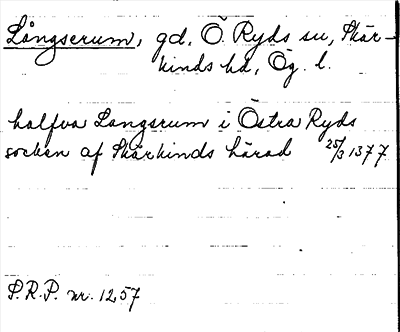 Långserum, gd, Ö. Ryds sn, Skär-
kinds hd, Ög. l.
halfva Langsrum i Östra Ryds
socken af Skärkinds härad 25/3 1377
P.R.P. nr. 1257